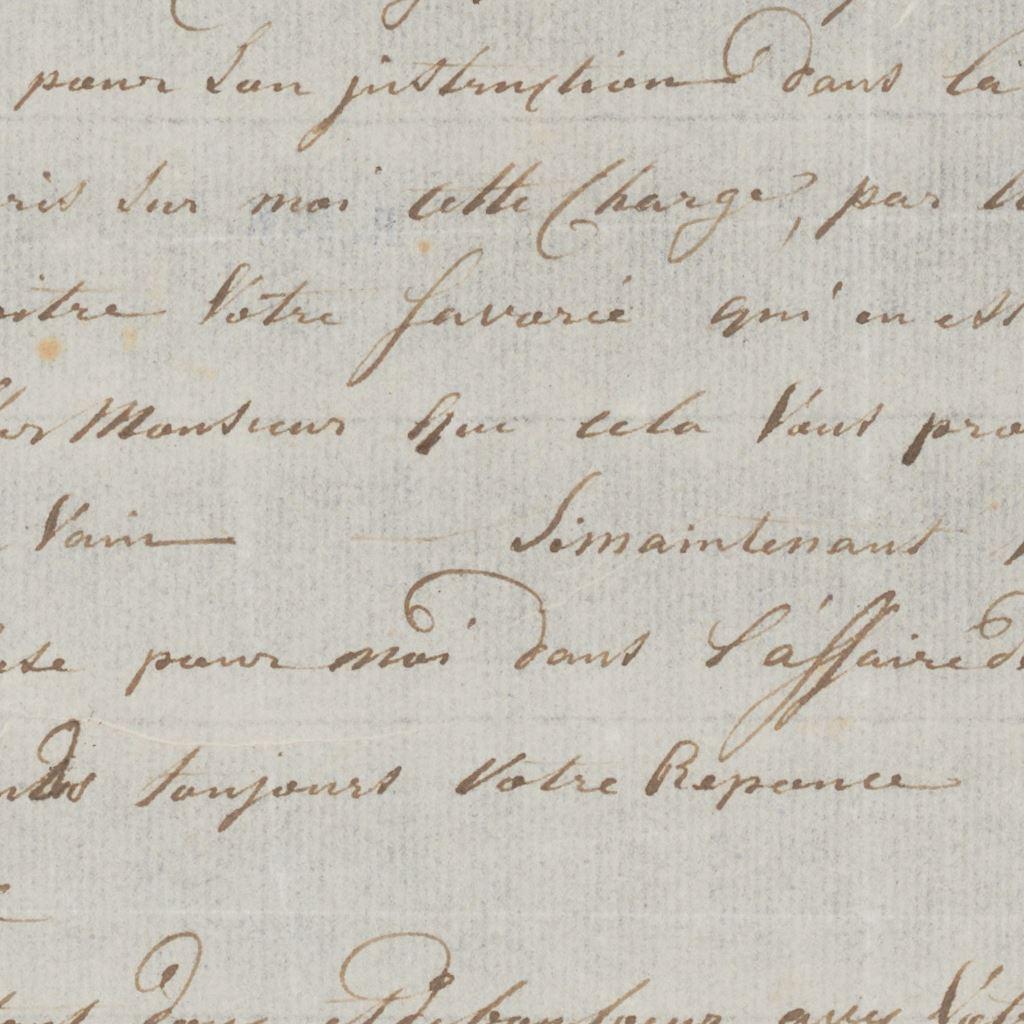 pour son justruction dans la
ris sur moi cette Charge, par
Votre favorie qui en est
Monsieur que cela Vous pro
Vain Simaintenant
pour moi dans l'affaire de
toujours Votre Reponce